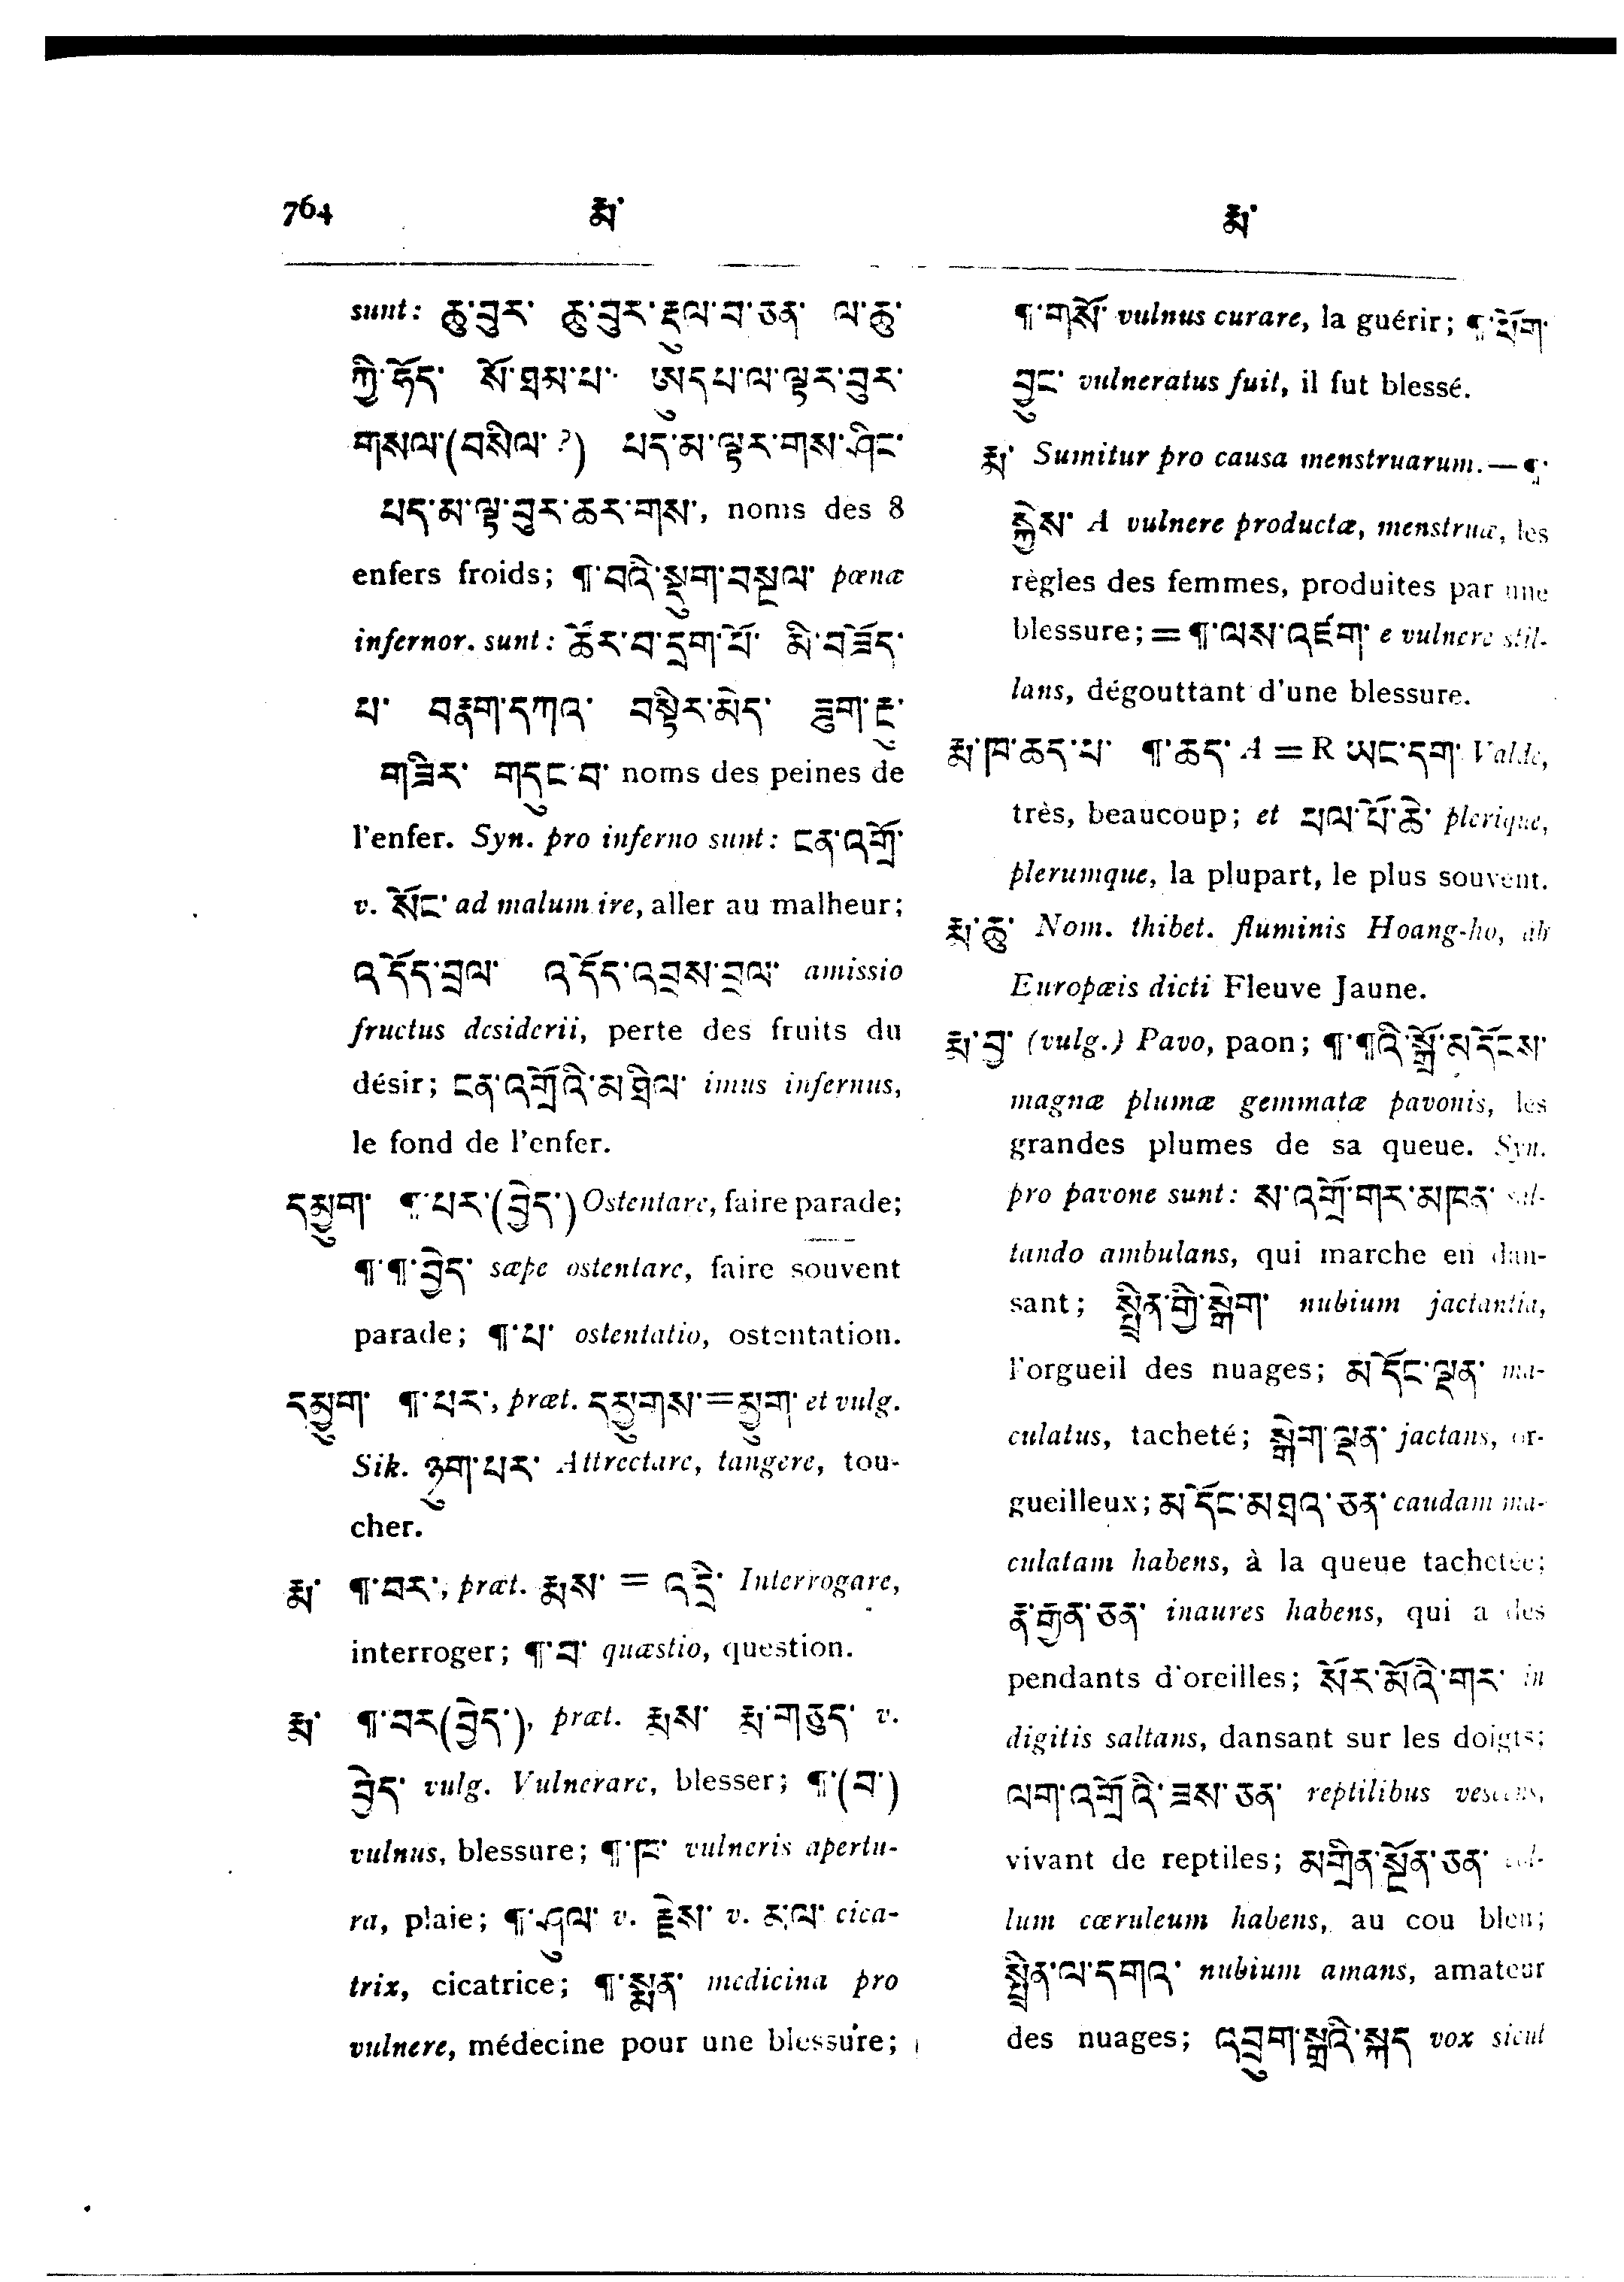 764 རྨ་ རྨ་
sunt: ཆུ་བུར་ ཆུ་བུར་རྡུལ་བ་ཅན་ ལ་ཆུ་
ཀྱི་ཧོད་ སོ་ཐམ་པ་ ཨུད་པ་ལ་ལྟར་བུར་
གསལ་(བསིལ་?) པད་མ་ལྟར་གས་ཤིང་
པད་མ་ལྟ་བུར་ཆར་གས་, noms des 8
enfers froids; ¶་བའི་སྡུག་བསྔལ་ pœnæ
infernor. sunt: ཚོར་བ་དྲག་པོ་ མི་བཟོད་
པ་ བརྣག་དཀའ་ བསྟིར་མེད་ ཟུག་རྔུ་
གཟིར་ གདུང་བ་ noms des peines de
l'enfer. Syn. pro inferno sunt: ངན་འགྲོ་
v. སོང་ ad malum ire, aller au malheur;
འདོད་བྲལ་ འདོད་འབྲས་བྲལ་ amissio
fructus desiderii, perte des fruits du
désir; ངན་འགྲོའི་མཐིལ་ imus infernus,
le fond de l'enfer.
དམྱུག་ ¶་པར་(བྱེད་) Ostentare, faire parade;
¶་¶་བྱེད་ sæpe ostentare, faire souvent
parade; ¶་པ་ ostentatio, ostentation.
དམྱུག་ ¶་པར་, præt. དམྱུགས་=མྱུག་ et vulg.
Sik. ཉུག་པར་ Attrectare, tangere, tou-
cher.
རྨ་ ¶་བར་, præt. རྨས་ = འདྲི་ Interrogare,
interroger; ¶་བ་ quæstio, question.
རྨ་ ¶་བར(བྱེད་), præt. རྨས་ རྨ་གཅུད་ v.
བྱེད་ vulg. Vulnerare, blesser; ¶་(བ་)
vulnus, blessure; ¶་ཁ་ vulneris apertu-
ra, plaie; ¶་ཤུལ་ v. རྗེས་ v. རལ་ cica-
trix, cicatrice; ¶་སྨན་ medicina pro
vulnere, médecine pour une blessure;
¶་གསོ་ vulnus curare, la guérir; ¶་ཕོག་
བྱུང་ vulneratus fuit, il fut blessé.
རྨ་ Sumitur pro causa menstruarum.—¶་
སྐྱེས་ A vulnere productæ, menstruæ, les
règles des femmes, produites par une
blessure; = ¶་ལས་འཛག་ e vulnere stil-
lans, dégouttant d'une blessure.
རྨ་ཁ་ཆད་པ་ ¶་ཆད་ A = R ཡང་དག་ Valde,
très, beaucoup; et ཕལ་པོ་ཆེ་ plerique,
plerumque, la plupart, le plus souvent.
རྨ་ཆུ་ Nom. thibet. fluminis Hoang-ho, ab
Europæis dicti Fleuve Jaune.
རྨ་བྱ་ (vulg.) Pavo, paon; ¶་¶འི་སྒྲོ་མདོངས་
magnæ plumæ gemmatæ pavonis, les
grandes plumes de sa queue. Syn.
pro pavone sunt: ས་འགྲོ་གར་མཁན་ sal-
tando ambulans, qui marche en dan-
sant; སྤྲིན་གྱི་སྒེག་ nubium jactantia,
l'orgueil des nuages; མདོང་ལྡན་ ma-
culatus, tacheté; སྒེག་ལྡན་ jactans, or-
gueilleux; མདོང་མཐའ་ཅན་ caudam ma-
culatam habens, à la queue tachetée;
རྣ་རྒྱན་ཅན་ inaures habens, qui a des
pendants d'oreilles; སོར་མོའི་གར་ in
digitis saltans, dansant sur les doigts;
ལག་འགྲོའི་ཟས་ཅན་ reptilibus vescens,
vivant de reptiles; མགྲིན་སྔོན་ཅན་ col-
lum cæruleum habens, au cou bleu;
སྤྲིན་ལ་དགའ་ nubium amans, amateur
des nuages; འབྲུག་སྒྲའི་སྐད vox sicut